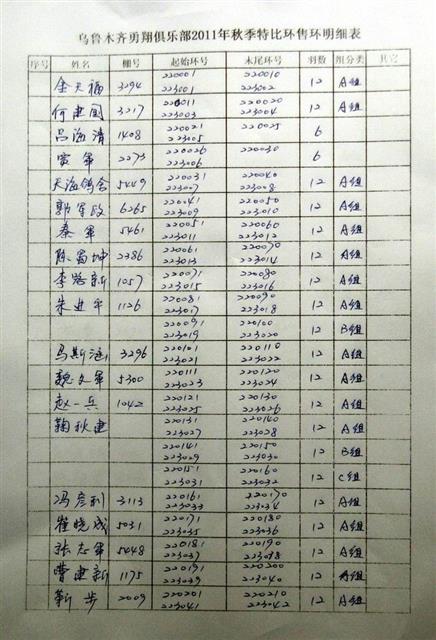 乌鲁木齐勇翔俱乐部2011年秋季特比环售环明细表
序号 姓名 棚号 起始环号 末尾环号 羽数 组分类 其它
220001 220010
金天福 3294 223001 223002 12 A组
220011 220020
何建国 3217 223003 223004 12 A组
220021 220025
吕海清 1408 223005 6
220026 220030
窦军 2273 223006 6
220031 220040
天海鸽舍 5449 223007 223008 12 A组
220041 220050
郭军政 6265 223009 223010 12 A组
220051 220060
秦军 5461 223011 223012 12 A组
220061 220070
陈富坤 2386 223013 223014 12 A组
220071 220080
李路新 1057 223015 223016 12 A组
220081 220090
朱进军 1126 223017 223018 12 A组
220091 220100
223019 223020 12 B组
220101 220110
马斯涵 3296 223021 223022 12 A组
220111 220120
魏文军 5300 223023 223024 12 A组
220121 220130
赵一兵 1042 223025 223026 12 A组
220131 220140
鞠秋建 223027 223028 12 A组
220141 220150
223029 223030 12 B组
220151 220160
223031 223032 12 C组
220161 220170
冯彦利 3113 223033 223034 12 A组
220171 220180
崔晓成 5031 223035 223036 12 A组
220181 220190
张志军 5448 223037 223038 12 A组
220191 220200
曹建新 1175 223039 223040 12 A组
220201 220210
靳步 2009 223041 223042 12 A组